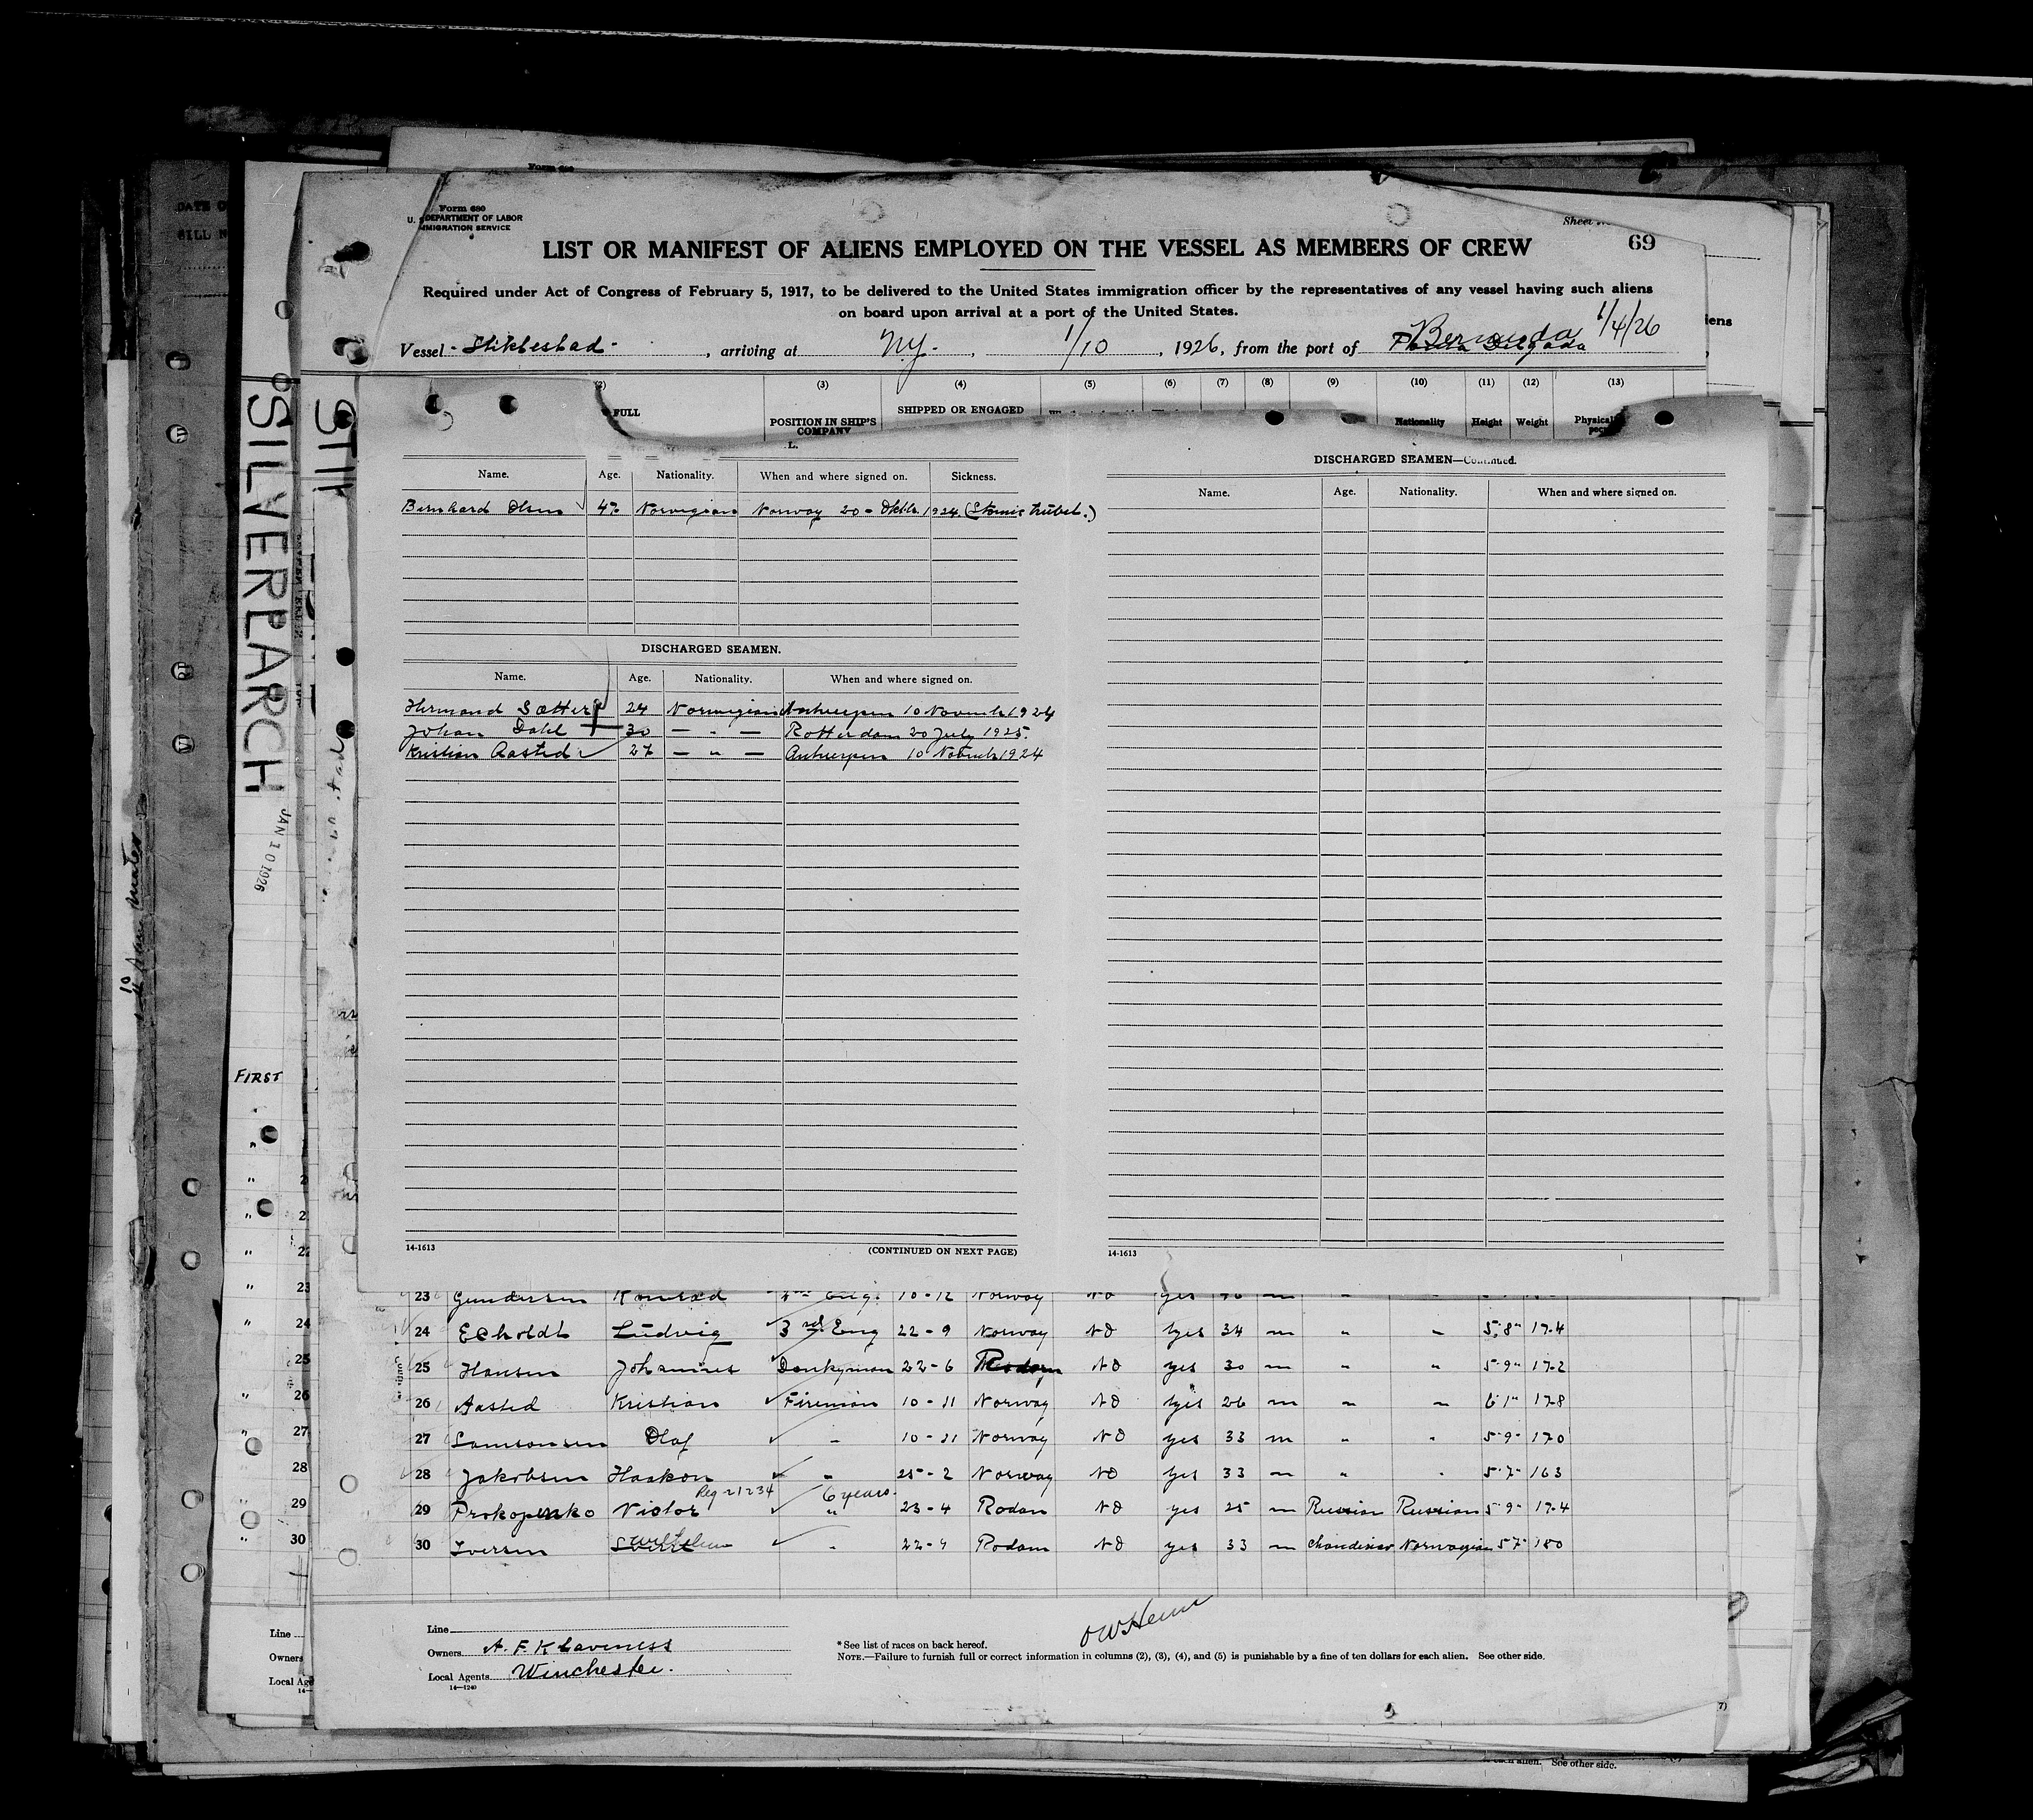 Form 680
U. S. DEPARTMENT OF LABOR
IMMIGRATION SERVICE
Sheet
69
LIST OR MANIFEST OF ALIENS EMPLOYED ON THE VESSEL AS MEMBERS OF CREW
Required under Act of Congress of February 5, 1917, to be delivered to the United States immigration officer by the representatives of any vessel having such aliens
on board upon arrival at a port of the United States.
Vessel Stiklestad, arriving at N.Y., 1/10, 1926, from the port of Bermuda 1/4/26
(2) (3) (4) (5) (6) (7) (8) (9) (10) (11) (12) (13)
FULL POSITION IN SHIP'S COMPANY SHIPPED OR ENGAGED Nationality Height Weight
Name. Age. Nationality. When and where signed on. Sickness.
Bernhard Olsen 47 Norwegian Norway 20 - Oktbr. 1924. (Stomic trübel.)
DISCHARGED SEAMEN.
Name. Age. Nationality. When and where signed on.
Hermand Sætter 24 Norwegian Antwerpen 10 Novemb 1924
Johan Dahl 30 — " — Rotterdam 20 July 1925.
Kristian Aasted 27 — " — Antwerpen 10 Novemb 1924
14-1613 (CONTINUED ON NEXT PAGE)
DISCHARGED SEAMEN—Continued.
Name. Age. Nationality. When and where signed on.
14-1613
23 Gundersen Konrad 10-12 Norway No yes m " "
24 Echoldt Ludvig 3rd Eng 22-9 Norway No yes 34 m " " 5'8" 174
25 Hansen Johannes Donkyman 22-6 Rodam No yes 30 m " " 5'9" 172
26 Aasted Kristian Fireman 10-11 Norway No yes 26 m " " 6'1" 178
27 Samsonsen Olaf " 10-11 Norway No yes 33 m " " 5'9" 170
28 Jakobsen Haakon " 25-2 Norway No yes 33 m " " 5'7" 163
Reg 21234 6 years.
29 Prokopenko Victor " 23-4 Rodam No yes 25 m Russian Russian 5'9" 174
30 Iversen " 22-9 Rodam No yes 33 m Norwegian 5'7" 180
Line
Owners A. F. Klaveness
Local Agents Winchester.
14-1240
* See list of races on back hereof.
NOTE.—Failure to furnish full or correct information in columns (2), (3), (4), and (5) is punishable by a fine of ten dollars for each alien. See other side.
SILVERLARCH
JAN 10 1926
FIRST
23
24
25
26
27
28
29
30
Line
Owners
Local
each alien. See other side.